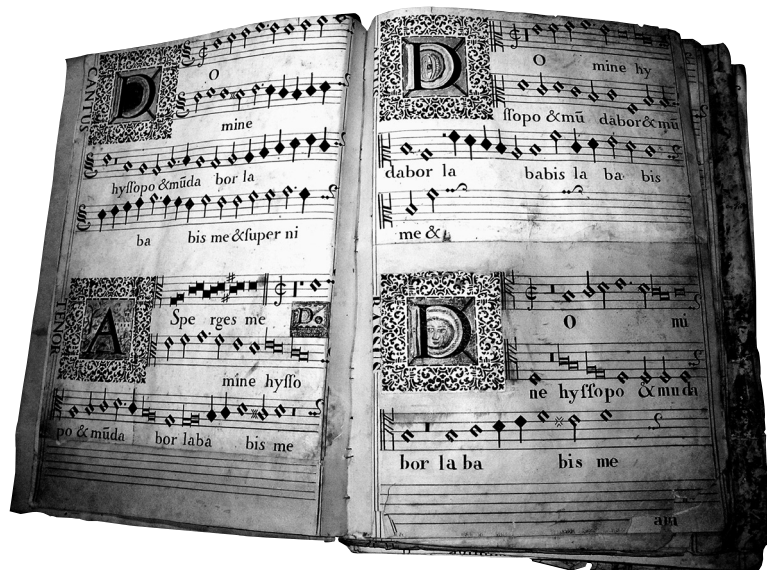 CANTUS
D O
mine
hyſſopo & mũda bor la
ba bis me & ſuper ni
TENOR
A Spe rges me D
mine hyſſo
po & mũda bor laba bis me
D O mine hy
ſſopo & mũ dabor & mũ
dabor la babis la ba bis
me &
D O mi
ne hyſſopo & mu da
bor la ba bis me
am